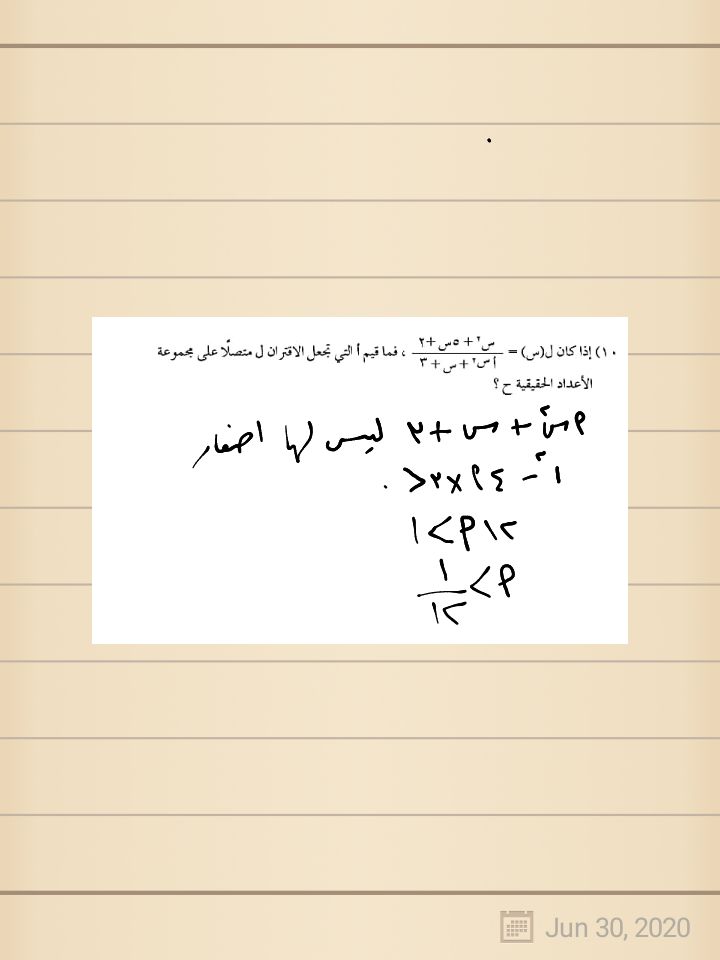 ١٠) إذا كان ل(س) = س٢ + ٥س + ٢ / أس٢ + س + ٣ ، فما قيم أ التي تجعل الاقتران ل متصلًا على مجموعة
الأعداد الحقيقية ح ؟
أس٢ + س + ٣ ليس لها اصفار
١٢ - ٤أ×٣ < ٠
١٢أ > ١
أ > ١/١٢
Jun 30, 2020